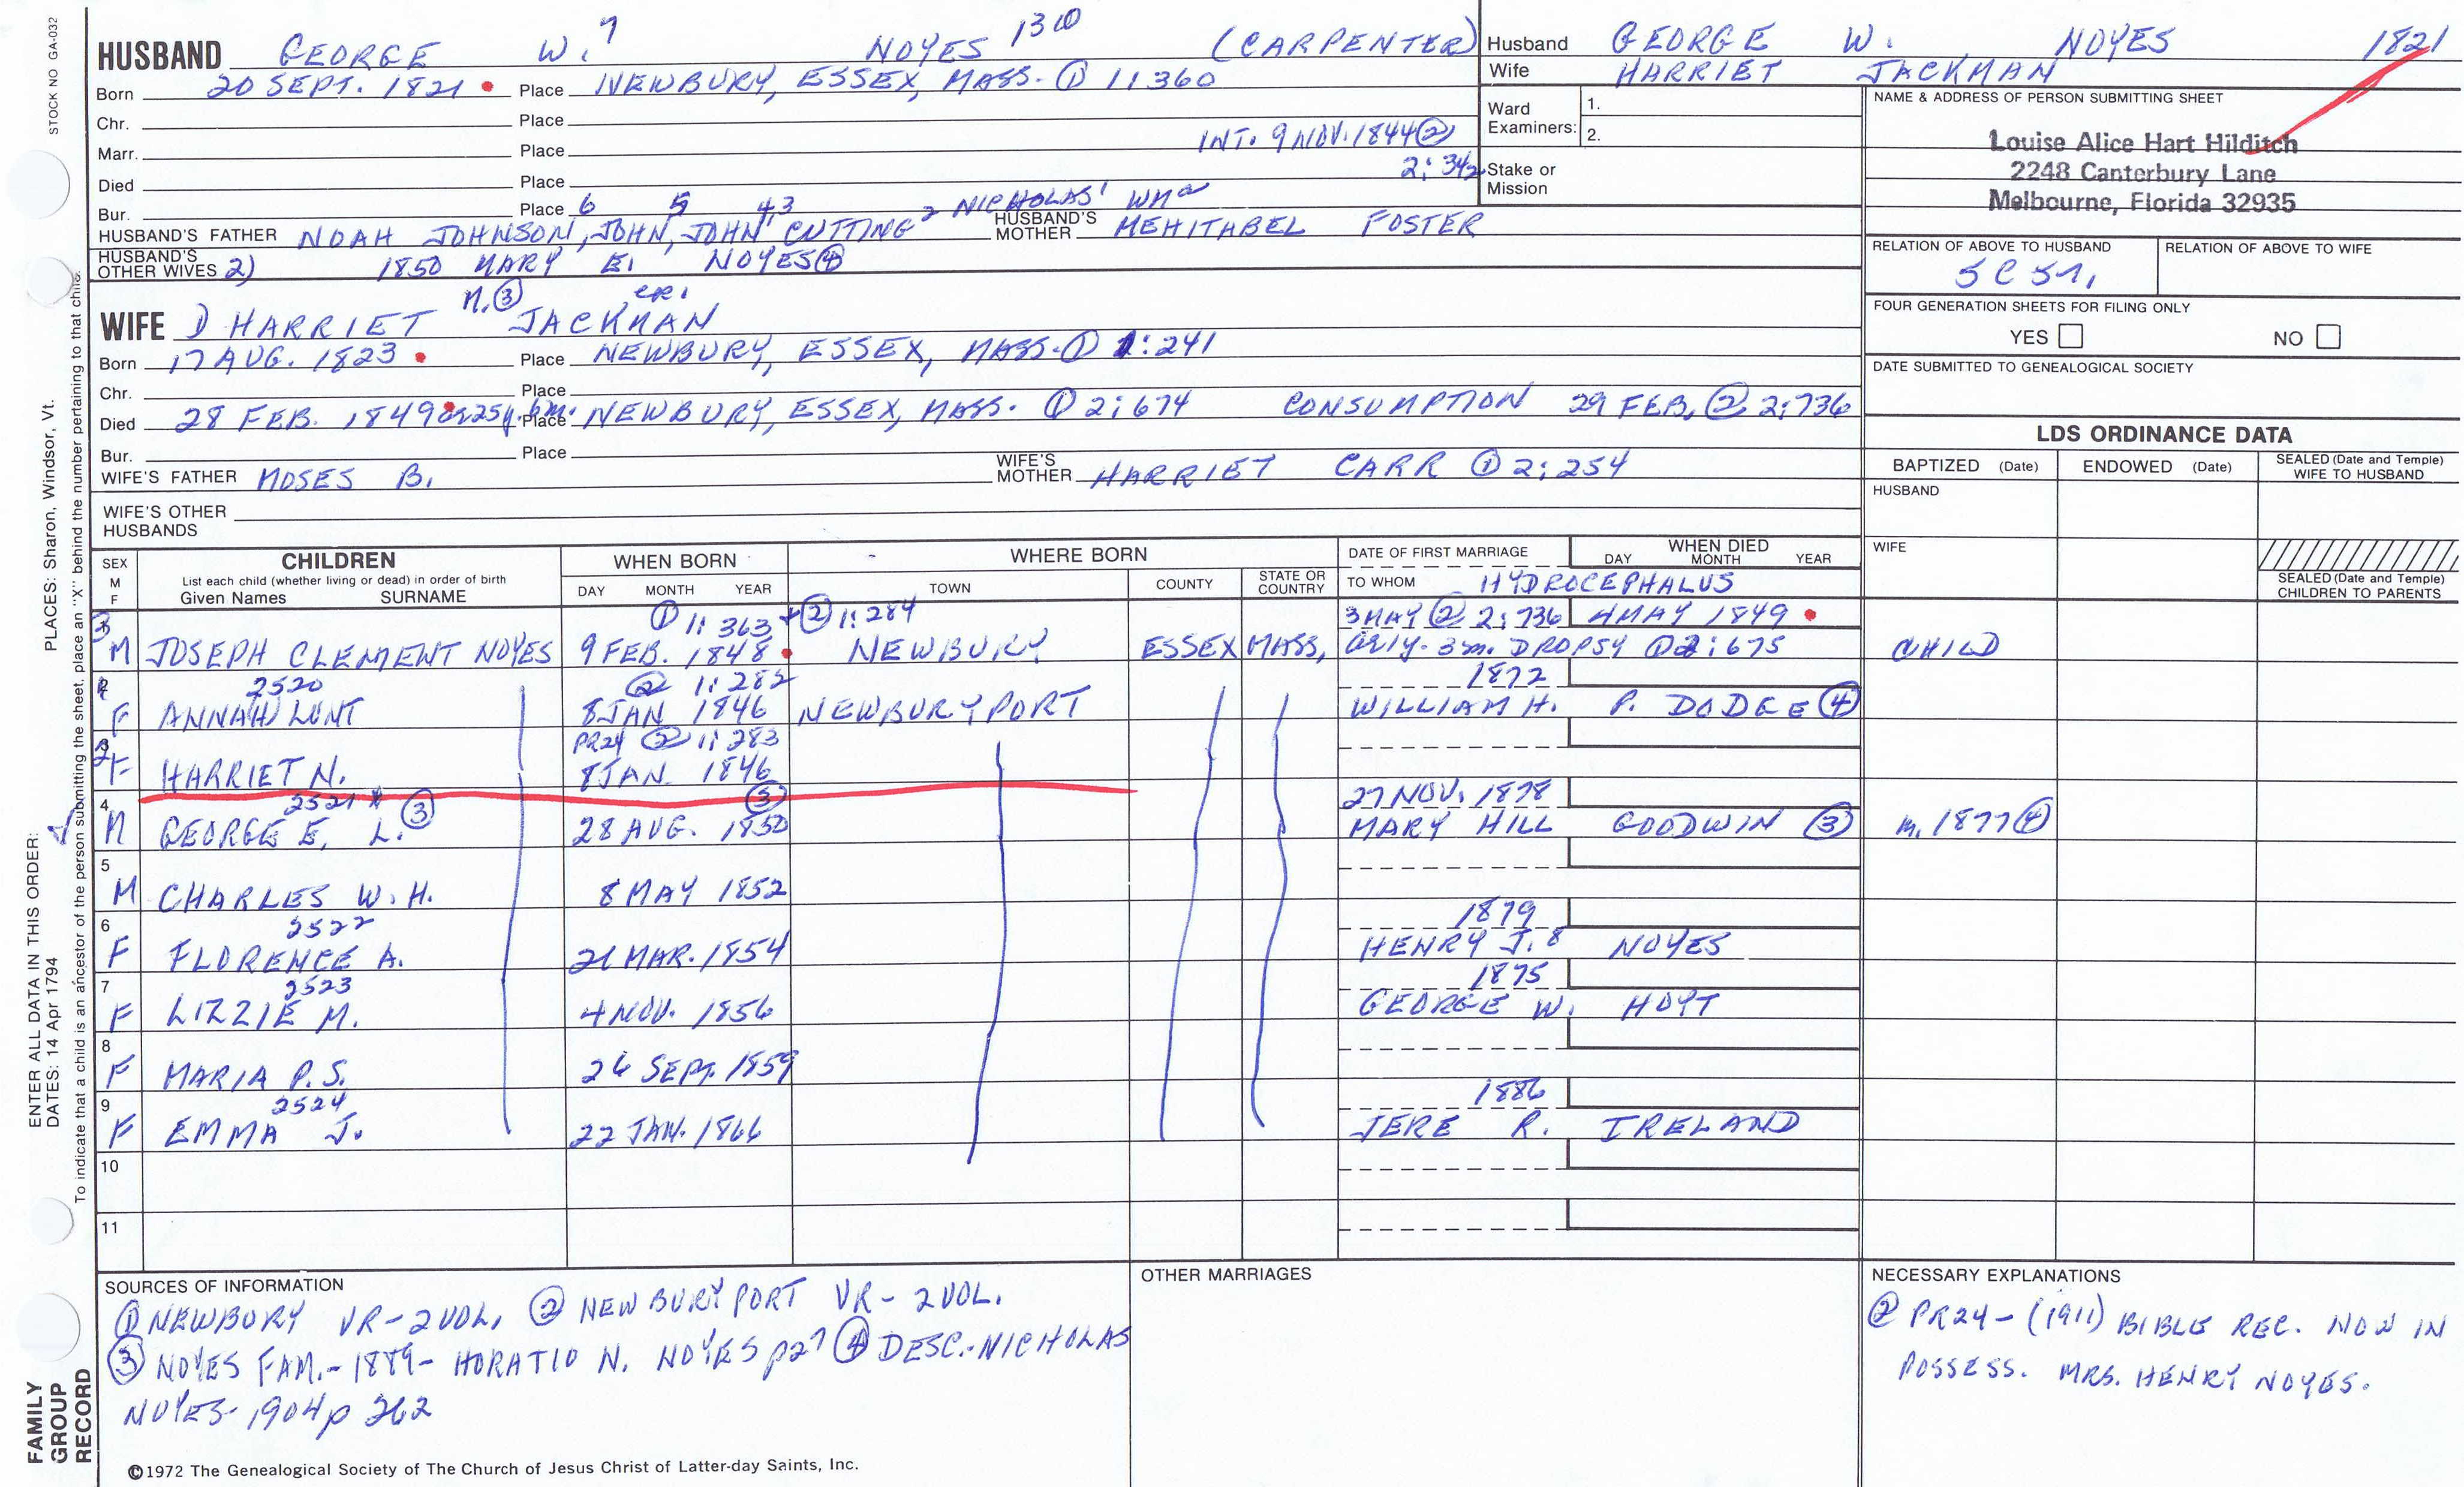 STOCK NO GA-032
HUSBAND GEORGE W.7 NOYES 1310 (CARPENTER)
Born 20 SEPT. 1821 Place NEWBURY, ESSEX, MASS. ① 1:360
Chr. Place
Marr. Place INT. 9 NOV. 1844 ②
Died Place 2:342
Bur. Place
HUSBAND'S FATHER NOAH JOHNSON6, JOHN5, JOHN4, CUTTING3 2 NICHOLAS' WMa HUSBAND'S MOTHER MEHITABEL FOSTER
HUSBAND'S OTHER WIVES 2) 1850 MARY E. NOYES ④
N. ③
WIFE 1) HARRIET JACKMAN
Born 17 AUG. 1823 Place NEWBURY, ESSEX, MASS. ① 1:241
Chr. Place
Died 28 FEB. 1849 ae 25y. 6m. Place NEWBURY, ESSEX, MASS. ① 2:674 CONSUMPTION 29 FEB. ② 2:736
Bur. Place
WIFE'S FATHER MOSES B. WIFE'S MOTHER HARRIET CARR ① 2:254
WIFE'S OTHER HUSBANDS
Husband GEORGE W. NOYES 1821
Wife HARRIET JACKMAN
Ward Examiners: 1.
2.
Stake or Mission
NAME & ADDRESS OF PERSON SUBMITTING SHEET
Louise Alice Hart Hilditch
2248 Canterbury Lane
Melbourne, Florida 32935
RELATION OF ABOVE TO HUSBAND RELATION OF ABOVE TO WIFE
5C 5r,
FOUR GENERATION SHEETS FOR FILING ONLY
YES NO
DATE SUBMITTED TO GENEALOGICAL SOCIETY
LDS ORDINANCE DATA
BAPTIZED (Date) ENDOWED (Date) SEALED (Date and Temple) WIFE TO HUSBAND
HUSBAND
WIFE
SEALED (Date and Temple) CHILDREN TO PARENTS
SEX M F CHILDREN WHEN BORN WHERE BORN DATE OF FIRST MARRIAGE WHEN DIED
List each child (whether living or dead) in order of birth
Given Names SURNAME DAY MONTH YEAR TOWN COUNTY STATE OR COUNTRY TO WHOM DAY MONTH YEAR
HYDROCEPHALUS
① 1:363 + ② 1:284 3 MAY ② 2:736 4 MAY 1849
3 M JOSEPH CLEMENT NOYES 9 FEB. 1848 NEWBURY ESSEX MASS, ae 1y. 3m. DROPSY ① 2:675 CHILD
2520 ② 1:282 1872
F ANNAH LUNT 8 JAN 1846 NEWBURYPORT WILLIAM H. P. DODGE ④
PR24 ② 1:283
2 F HARRIET N. 8 JAN. 1846
4 2521 * ③ ③ 27 NOV. 1878
M GEORGE E. L. 28 AUG. 1850 MARY HILL GOODWIN ③ m. 1877 ④
5
M CHARLES W. H. 8 MAY 1852
6 2522 1879
F FLORENCE A. 21 MAR. 1854 HENRY J.8 NOYES
7 2523 1875
F LIZZIE M. 4 NOV. 1856 GEORGE W. HOYT
8
F MARIA P.S. 26 SEPT. 1859
9 2524 1886
F EMMA J. 22 JAN. 1866 JERE R. IRELAND
10
11
SOURCES OF INFORMATION
① NEWBURY VR - 2 VOL, ② NEWBURYPORT VR - 2 VOL.
③ NOYES FAM. - 1889 - HORATIO N. NOYES p27 ④ DESC.-NICHOLAS
NOYES - 1904 p 262
OTHER MARRIAGES
NECESSARY EXPLANATIONS
② PR24 - (1911) BIBLE REC. NOW IN
POSSESS. MRS. HENRY NOYES.
©1972 The Genealogical Society of The Church of Jesus Christ of Latter-day Saints, Inc.
FAMILY GROUP RECORD
ENTER ALL DATA IN THIS ORDER:
DATES: 14 Apr 1794
PLACES: Sharon, Windsor, Vt.
To indicate that a child is an ancestor of the person submitting the sheet, place an "X" behind the number pertaining to that child.